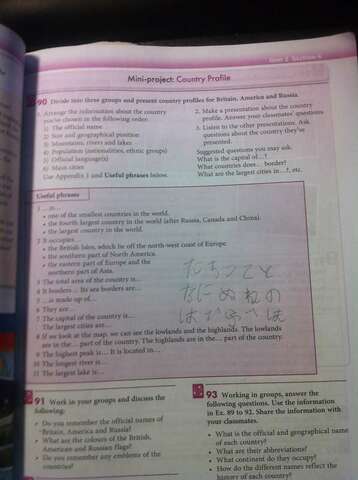 Unit 2 Section 6
Mini-project: Country Profile
90 Divide into three groups and present country profiles for Britain, America and Russia.
1. Arrange the information about the country
you've chosen in the following order.
1) The official name
2) Size and geographical position
3) Mountains, rivers and lakes
4) Population (nationalities, ethnic groups)
5) Official language(s)
6) Main cities
Use Appendix 1 and Useful phrases below.
2. Make a presentation about the country
profile. Answer your classmates' questions
3. Listen to the other presentations. Ask
questions about the country they've
presented.
Suggested questions you may ask.
What is the capital of...?
What countries does... border?
What are the largest cities in...?, etc.
Useful phrases
1 ...is...
• one of the smallest countries in the world.
• the fourth largest country in the world (after Russia, Canada and China).
• the largest country in the world.
2 It occupies...
• the British Isles, which lie off the north-west coast of Europe
• the southern part of North America.
• the eastern part of Europe and the
northern part of Asia.
3 The total area of the country is...
4 It borders ... Its sea borders are...
5 ...is made up of...
6 They are...
7 The capital of the country is...
The largest cities are...
8 If we look at the map, we can see the lowlands and the highlands. The lowlands
are in the... part of the country. The highlands are in the... part of the country.
9 The highest peak is... It is located in...
10 The longest river is...
11 The largest lake is...
たちつてと
なにぬねの
はひふへほ
91 Work in your groups and discuss the
following:
• Do you remember the official names of
Britain, America and Russia?
• What are the colours of the British,
American and Russian flags?
• Do you remember any emblems of the
countries?
93 Working in groups, answer the
following questions. Use the information
in Ex. 89 to 92. Share the information with
your classmates.
• What is the official and geographical name
of each country?
• What are their abbreviations?
• What continent do they occupy?
• How do the different names reflect the
history of each country?